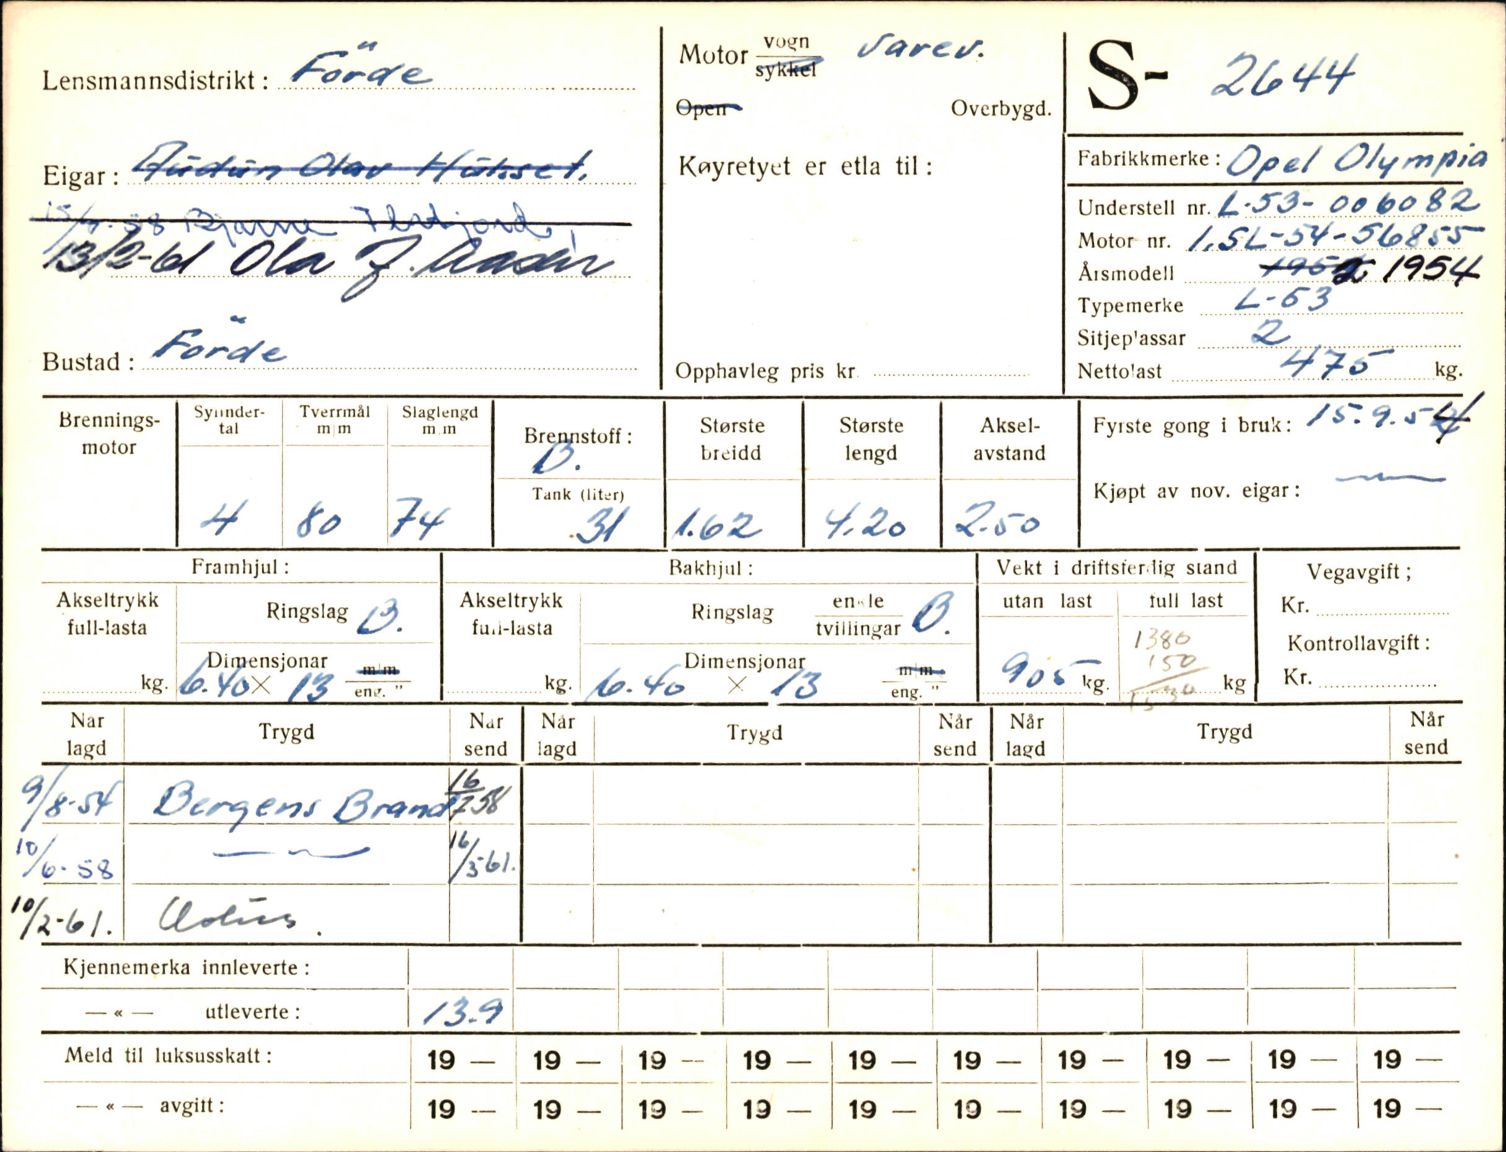 Lensmannsdistrikt: Förde
Motor vogn sykkel varev.
Open Overbygd.
S- 2644
Eigar: Audun Olav
15/7-58 Bjarne
13/2-61 Ola J.
Bustad: Förde
Køyretyet er etla til:
Opphavleg pris kr.
Fabrikkmerke: Opel Olympia
Understell nr. L-53-006082
Motor nr. 1,5L-54-56855
Årsmodell 1954
Typemerke L-53
Sitjeplassar 2
Nettolast 475 kg.
Brenningsmotor
Sylindertal 4
Tverrmål m/m 80
Slaglengd m.m 74
Brennstoff: B.
Tank (liter) 31
Største breidd 1.62
Største lengd 4.20
Akselavstand 2.50
Fyrste gong i bruk: 15.9.54
Kjøpt av nov. eigar: —"—
Framhjul:
Akseltrykk full-lasta kg.
Ringslag B.
Dimensjonar 6.40 × 13 m/m eng. "
Bakhjul:
Akseltrykk full-lasta kg.
Ringslag enkle tvillingar B.
Dimensjonar 6.40 × 13 m/m eng. "
Vekt i driftsferdig stand
utan last 905 kg.
full last 1380 150 1530 kg
Vegavgift;
Kr.
Kontrollavgift:
Kr.
Når lagd Trygd Når send Når lagd Trygd Når send Når lagd Trygd Når send
9/8-54 Bergens Brand 16/7 58
10/6-58 —"— 16/3-61.
10/2-61.
Kjennemerka innleverte:
— « — utleverte: 13.9
Meld til luksusskatt: 19 — 19 — 19 — 19 — 19 — 19 — 19 — 19 — 19 — 19 —
— « — avgitt: 19 — 19 — 19 — 19 — 19 — 19 — 19 — 19 — 19 — 19 —